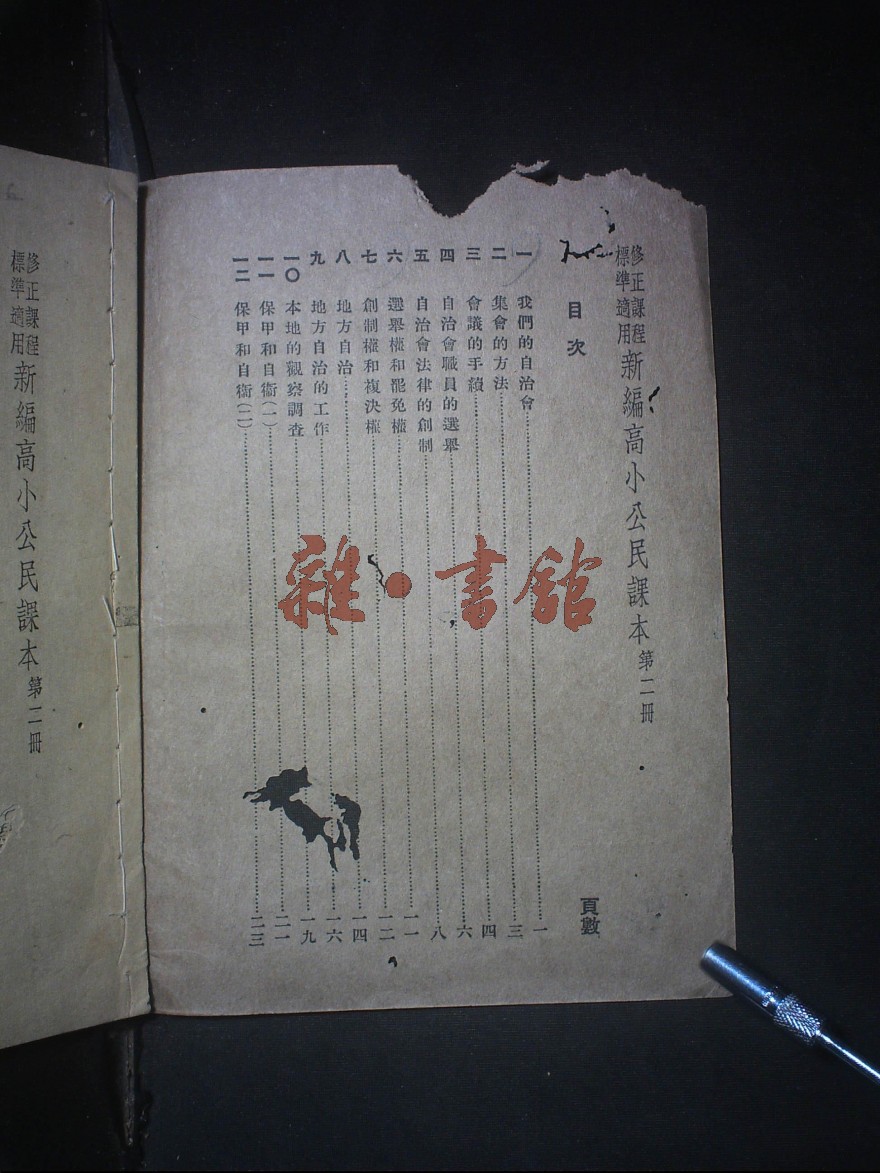 修正課程標準適用 新編高小公民課本 第二冊
目次 頁數
一 我們的自治會……一
二 集會的方法……三
三 會議的手續……四
四 自治會職員的選舉……六
五 自治會法律的創制……八
六 選舉權和罷免權……一一
七 創制權和複決權……一二
八 地方自治……一四
九 地方自治的工作……一六
一〇 本地的觀察調查……一九
一一 保甲和自衞(一)……二一
一二 保甲和自衞(二)……二三
修正課程標準適用 新編高小公民課本 第二冊
雜·書館